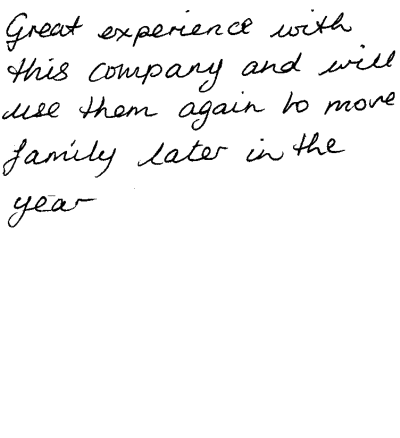 Great experience with
this company and will
use them again to move
family later in the
year